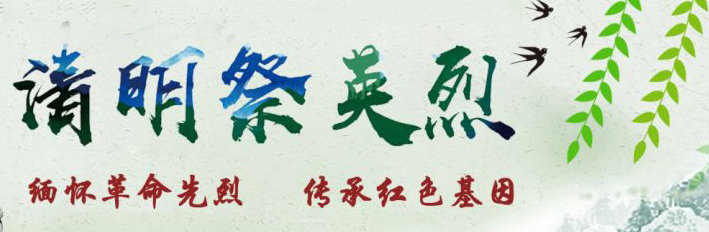 清明祭英烈
缅怀革命先烈 传承红色基因